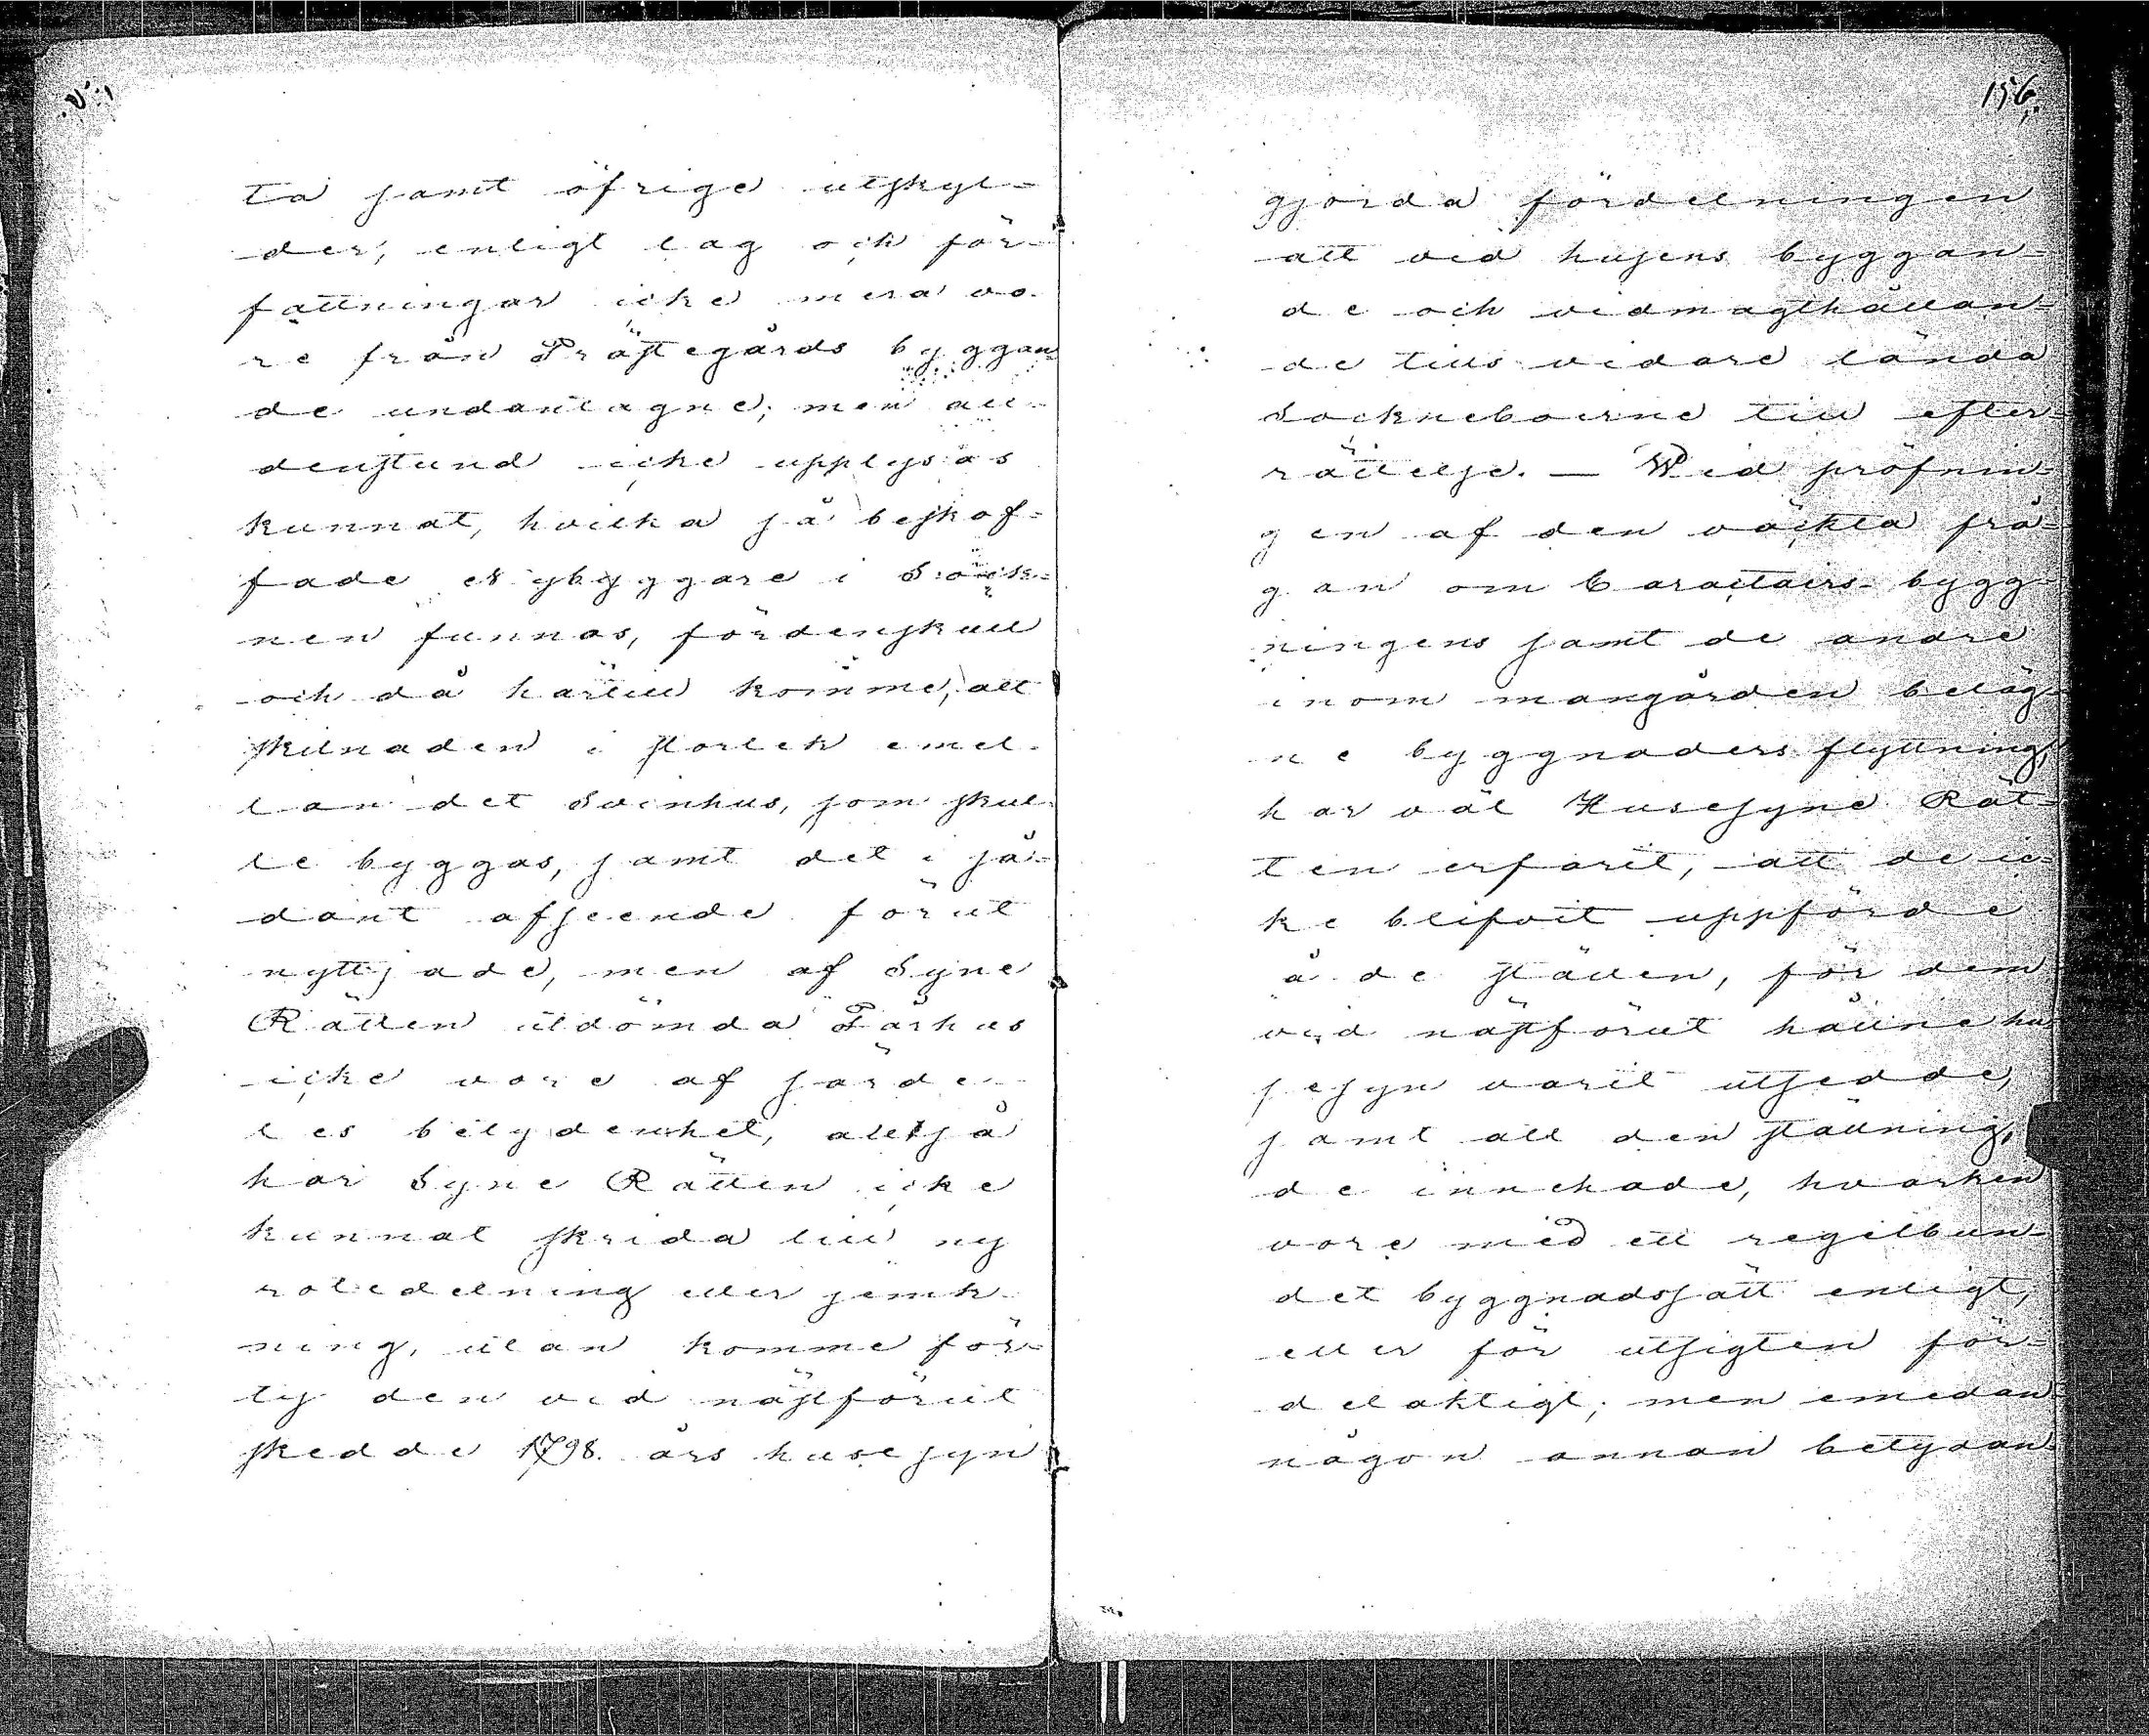 ta samt öfrige utskyl-
der, enligt lag och för-
fattningar icke mera vo-
re från Prästegårds byggan
de undantagne; men all-
denstund icke upplysas
kunnat, hvilka så beskaf-
fade Nybyggare i Sock-
nen funnos, fördenskull
och då härtill komme, att
skilnaden i storlek emel-
lan det Svinhus, som skul-
le byggas, samt det i så-
dant afseende förut
nyttjade, men af Syne
Rätten utdömda Fårhus
icke vore af särde-
les betydenhet, alltså
har Syne Rätten icke
kunnat skrida till ny
rotedelning eller jemk-
ning, utan komme för-
ty den vid nästförut
skedde 1798. års husesyn
156.
gjorda fördelningen
att vid husens byggan-
de och vidmagthållan-
de tills vidare lända
Sockneboerne till efter-
rättelse. — Wid pröfnin-
gen af den väckta frå-
gan om Caractairs-bygg-
ningens samt de andre
inom mangården beläg-
ne byggnaders flyttning,
har väl Husesyne Rät-
ten erfarit, att de ic-
ke blifvit uppförde
å de ställen, för dem
vid nästförut hållne hu-
sesyn varit utsedde,
samt att den ställning,
de innehade, hvarken
vore med ett regelbun-
det byggnadssätt enligt,
eller för utsigten för-
delaktigt; men emedan
någon annan betydan-